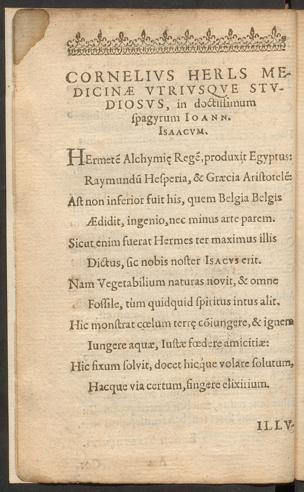 CORNELIVS HERLS ME-
DICINÆ VTRIVSQVE STV-
DIOSVS, in doctissimum
spagyrum IOANN.
ISAACVM.
HErmetē Alchymię Regē, produxit Egyptus:
Raymundū Hesperia, & Græcia Aristotelē:
Ast non inferior fuit his, quem Belgia Belgis
Ædidit, ingenio, nec minus arte parem.
Sicut enim fuerat Hermes ter maximus illis
Dictus, sic nobis noster ISACVS erit.
Nam Vegetabilium naturas novit, & omne
Fossile, tùm quidquid spiritus intus alit.
Hic monstrat cœlum terrę cōiungere, & ignem
Iungere aquæ, Iustæ fœdere amicitiæ:
Hic fixum solvit, docet hicque volare solutum,
Hacque via certum, fingere elixirium.
ILLV-